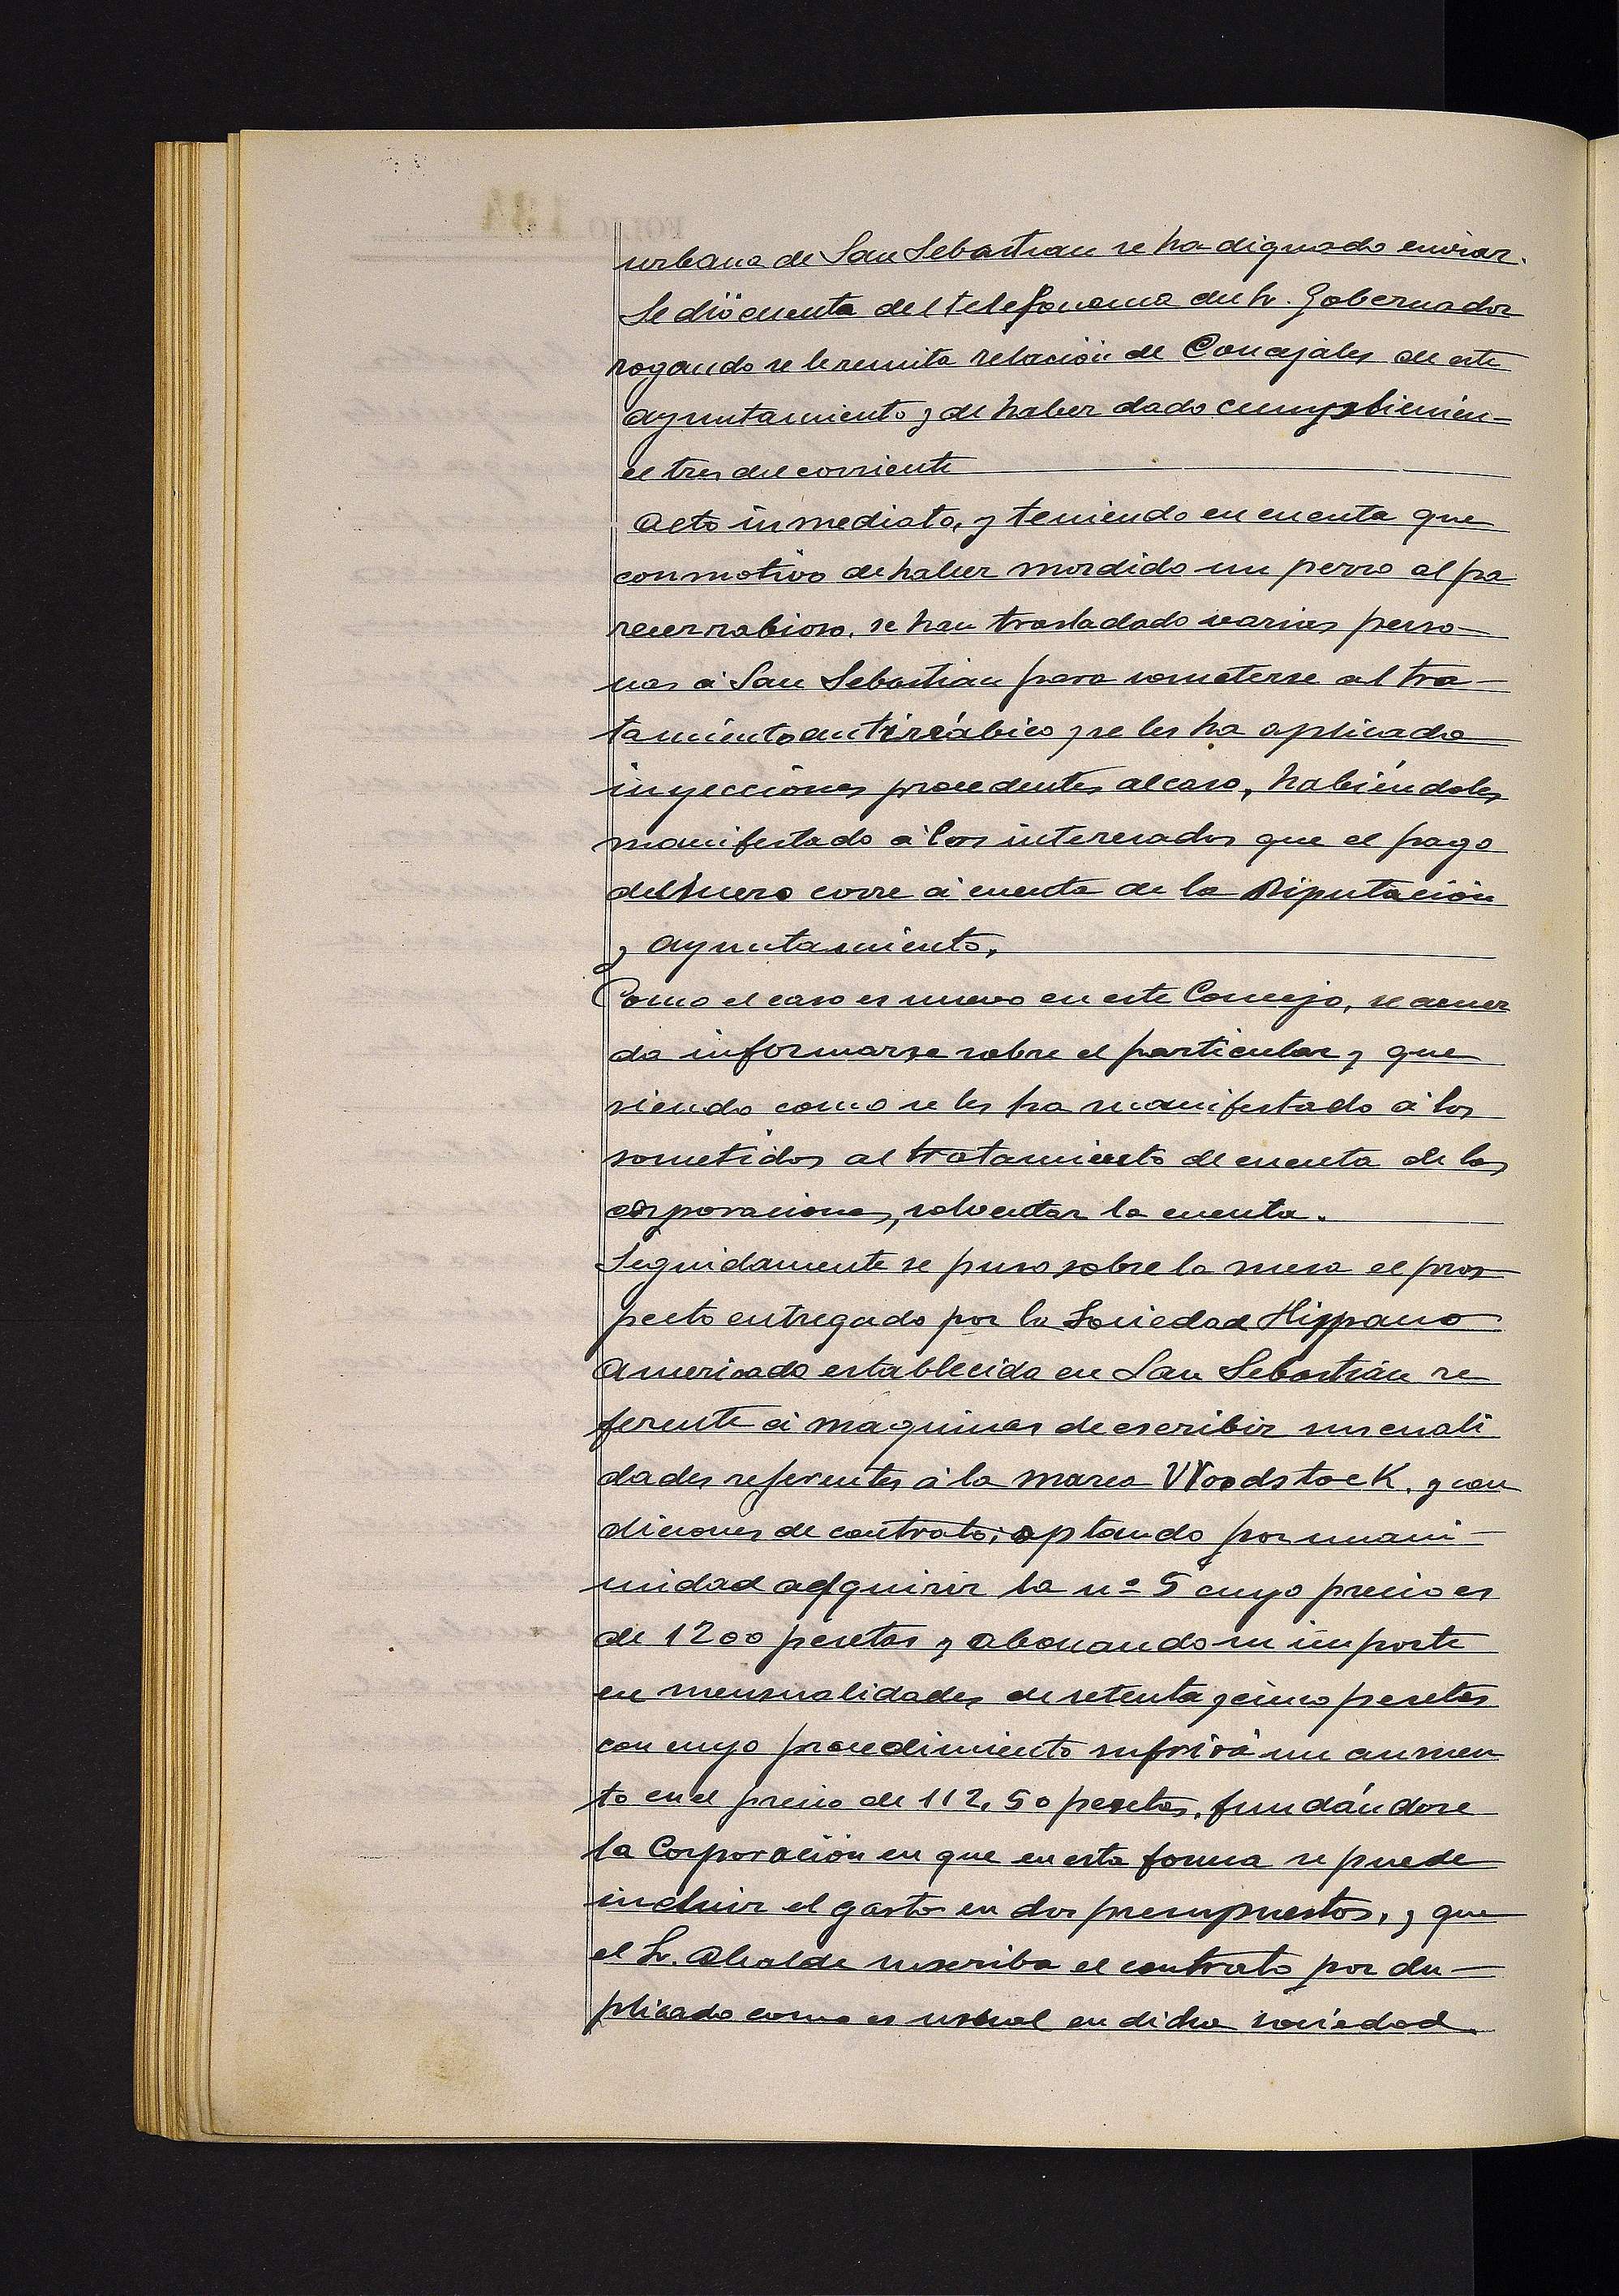 urbana de San Sebastian se ha dignado enviar.
Se dió cuenta del telefonema del Sr. Gobernador
rogando se le remita relación de Concejales de este
Ayuntamiento y de haber dado cumplimien-
el tres del corriente
Acto inmediato, y teniendo en cuenta que
con motivo de haber mordido un perro al pa
recer rabioso, se han trasladado varias perso-
nas á San Sebastian para someterse al tra-
tamiento antirrábico y se les ha aplicado
inyecciones procedentes al caso, habiéndoles
manifestado á los interesados que el pago
del suero corre á cuenta de la Diputación
y Ayuntamiento,
Como el caso es nuevo en este Concejo, se acuer
da informarse sobre el particular y que
siendo como se les ha manifestado á los
sometidos al tratamiento de cuenta de las
corporaciones, solventar la cuenta.
Seguidamente se puso sobre la mesa el pros
pecto entregado por la Sociedad Hispano
Americada establecida en San Sebastián re
ferente á maquinas de escribir sus cuali
dades referentes á la marca Woodstock, y con
diciones de contrato; optando por unani-
midad adquirir la nº 5 cuyo precio es
de 1200 pesetas y abonando su importe
en mensualidades de setenta y cinco pesetas
con cuyo procedimiento sufrirá un aumen
to en el precio de 112,50 pesetas, fundándose
la Corporación en que en esta forma se puede
incluir el gasto en dos presupuestos, y que
el Sr. Alcalde suscriba el contrato por du-
plicado como es usual en dicha sociedad.